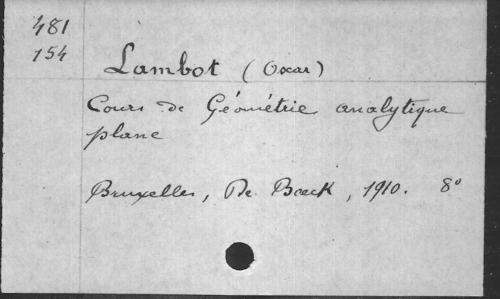 481
154
Lambot (Oscar)
Cours de Géométrie analytique
plane
Bruxelles, De Boeck, 1910. 8°